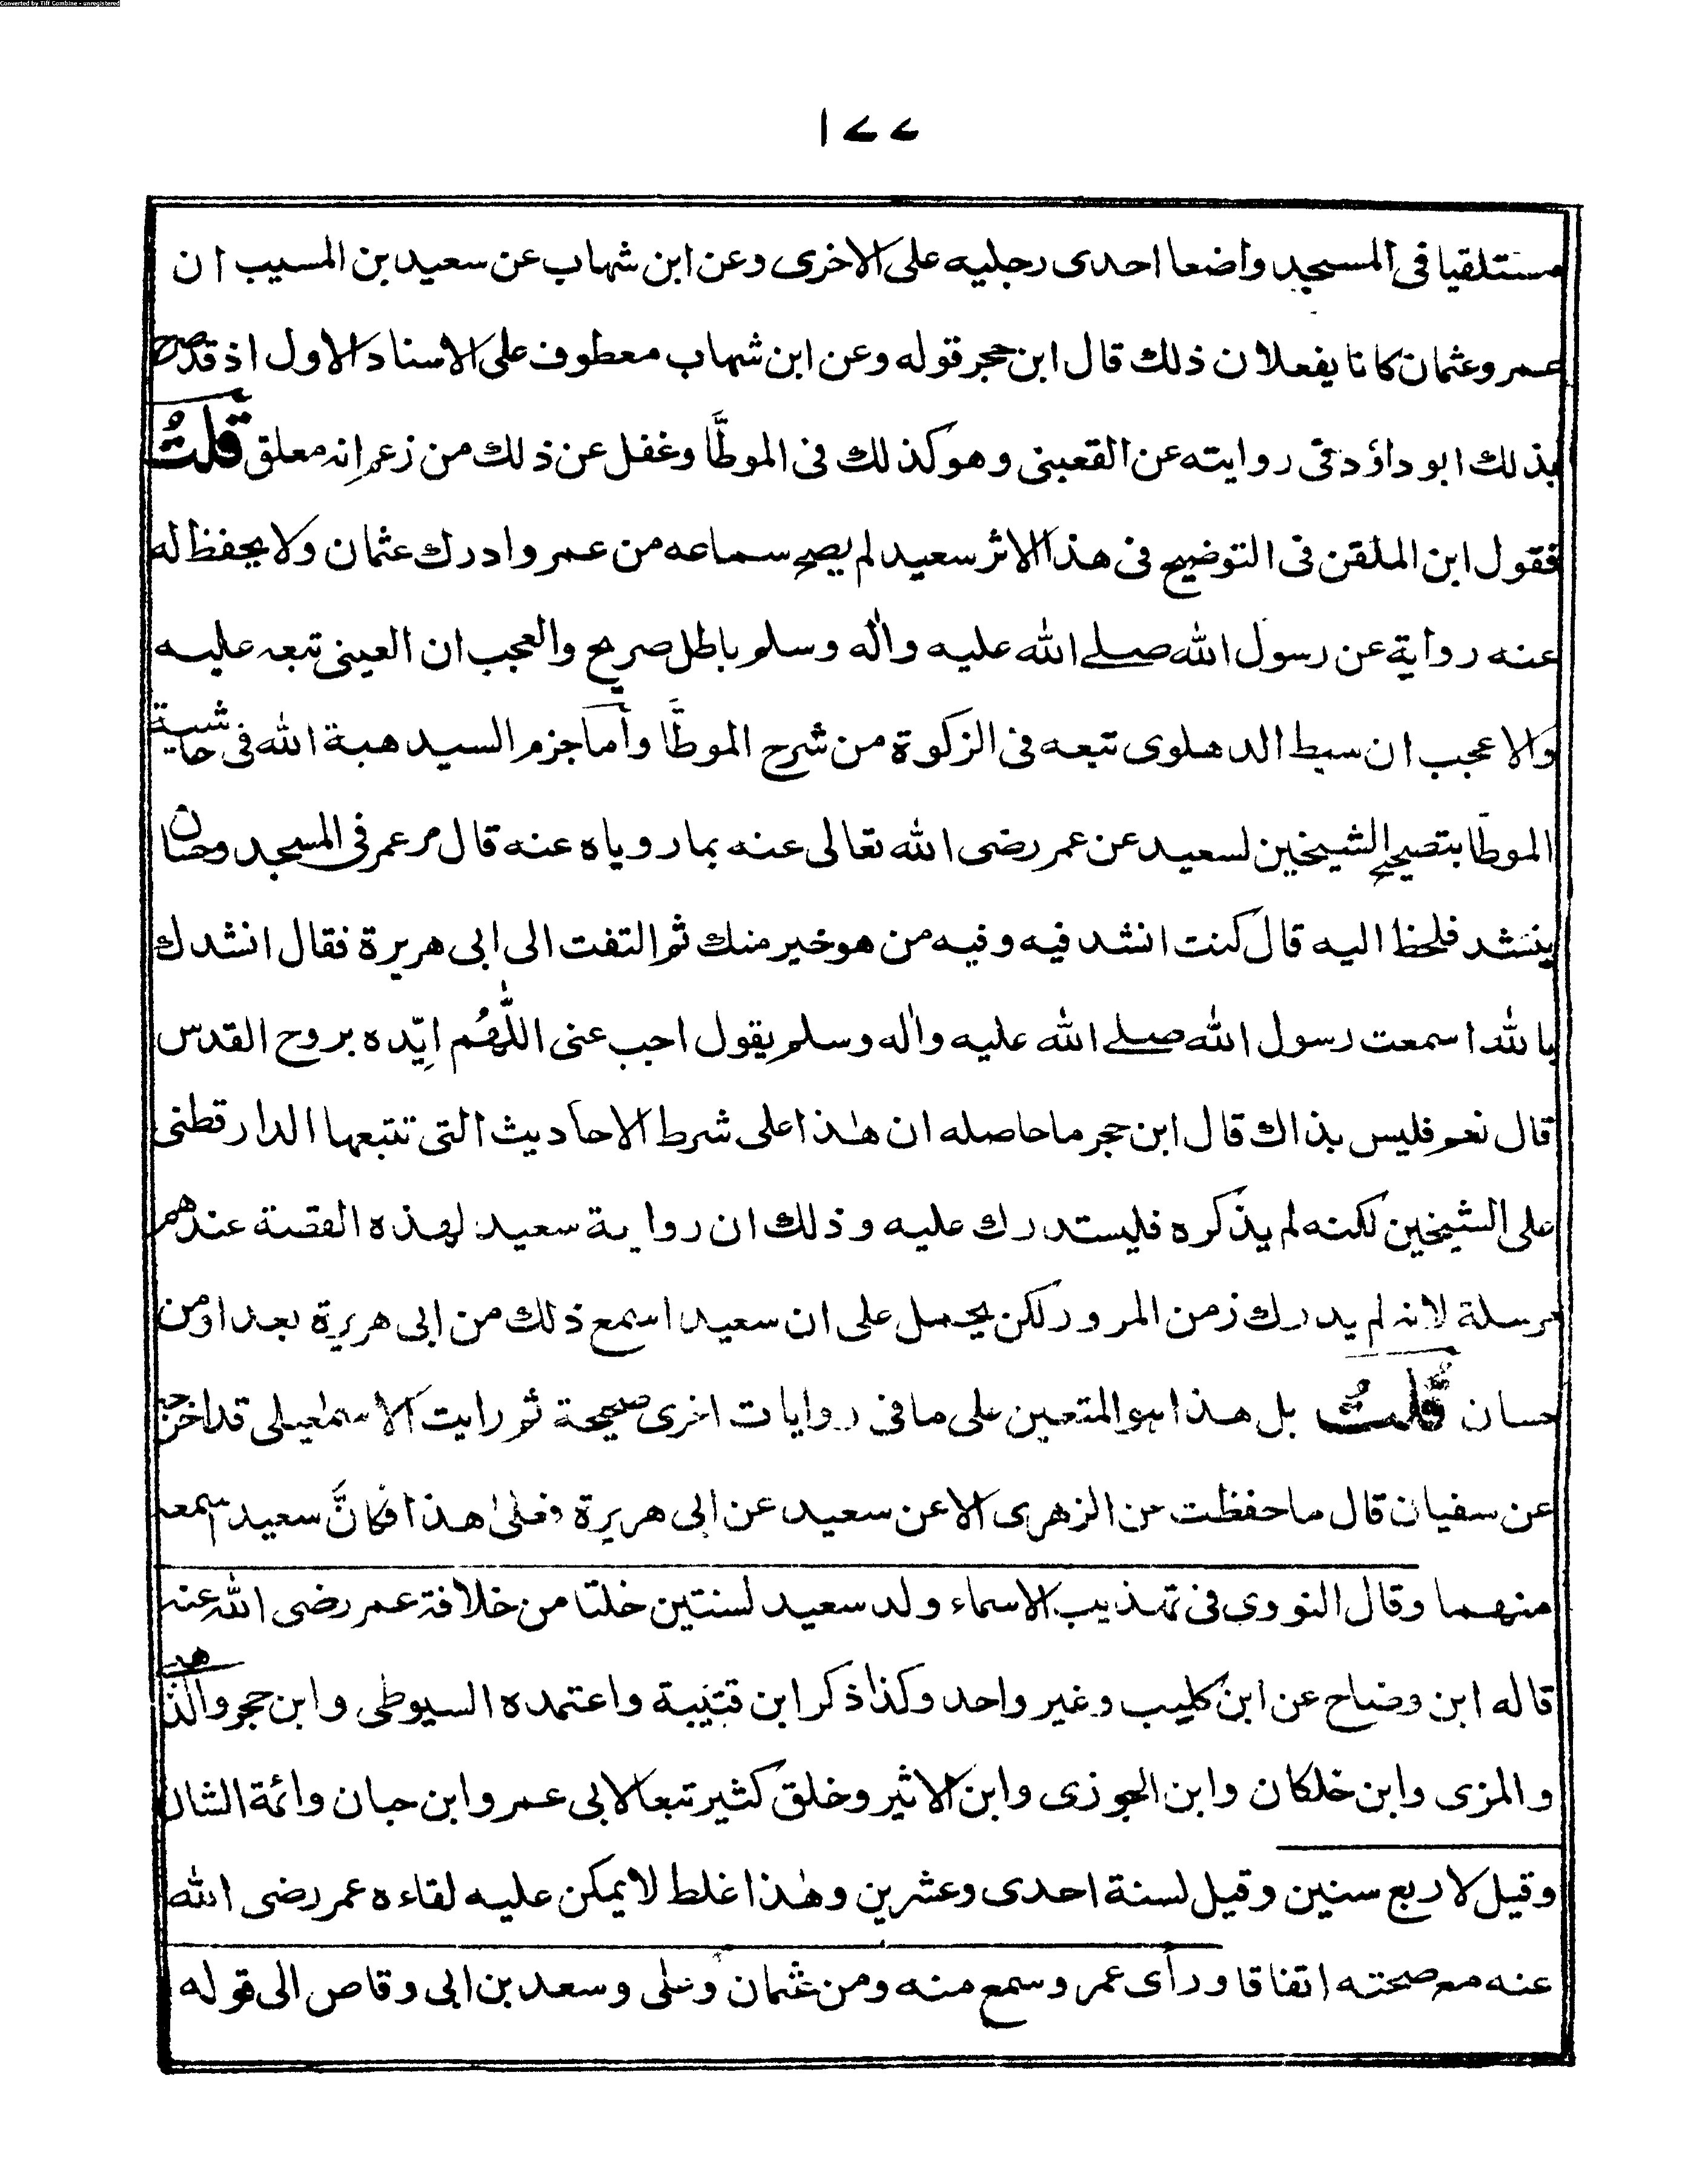 Converted by Tiff Combine - unregistered
١٧٧
مستلقيا فى المسجد واضعا احدى رجليه على الاخرى وعن ابن شهاب عن سعيد بن المسيب ان
عمر وعثمان كانا يفعلان ذلك قال ابن حجر قوله وعن ابن شهاب معطوف على الاسناد الاول اذ قد صرح
بذلك ابو داؤد فى روايته عن القعبنى وهو كذلك فى الموطّا وغفل عن ذلك من زعم انه معلق قلتُ
فقول ابن الملقن فى التوضيح فى هذا الاثر سعيد لم يصح سماعه من عمر وادرك عثمان ولا يحفظ له
عنه رواية عن رسول الله صلے الله عليه واٰله وسلم باطل صريح والعجب ان العينى تبعه عليه
والاعجب ان سبط الدهلوى تبعه فى الزكوة من شرح الموطّا وأما جزم السيد هبة الله فى حاشية
الموطّا بتصحيح الشيخين لسعيد عن عمر رضى الله تعالى عنه بما روياه عنه قال مر عمر فى المسجد وحسان
ينشد فلحظ اليه قال كنت انشد فيه وفيه من هو خير منك ثم التفت الى ابى هريرة فقال انشدك
بالله اسمعت رسول الله صلے الله عليه واٰله وسلم يقول اجب عنى اللّٰهُم ايِّده بروح القدس
قال نعم فليس بذاك قال ابن حجر ما حاصله ان هٰذا على شرط الاحاديث التى تتبعها الدارقطنى
على الشيخين لكنه لم يذكره فليستدرك عليه وذلك ان رواية سعيد لهذه القصة عندهم
مرسلة لانه لم يدرك زمن المرور لكن يحمل على ان سعيدا سمع ذلك من ابى هريرة بعد او من
حسان قُلتُ بل هذا هو المتعين على ما فى روايات اخرى صحيحة ثم رايت الاسمٰعيلى قد اخرجه
عن سفيان قال ما حفظت عن الزهرى الا عن سعيد عن ابى هريرة فعلىٰ هذا فكانَّ سعيد سمعه
منهما وقال النووى فى تهذيب الاسماء ولد سعيد لسنتين خلتا من خلافة عمر رضى الله عنه
قاله ابن وضاح عن ابن كليب وغير واحد وكذا ذكر ابن قتيبة واعتمده السيوطى وابن حجر والذهبى
والمزى وابن خلكان وابن الجوزى وابن الاثير وخلق كثير تبعا لابى عمر وابن حبان وائمة الشان
وقيل لاربع سنين وقيل لسنة احدى وعشرين وهٰذا غلط لا يمكن عليه لقاءه عمر رضى الله
عنه مع صحته اتفاقا ورأى عمر وسمع منه ومن عثمان وعلى وسعد بن ابى وقاص الى قوله